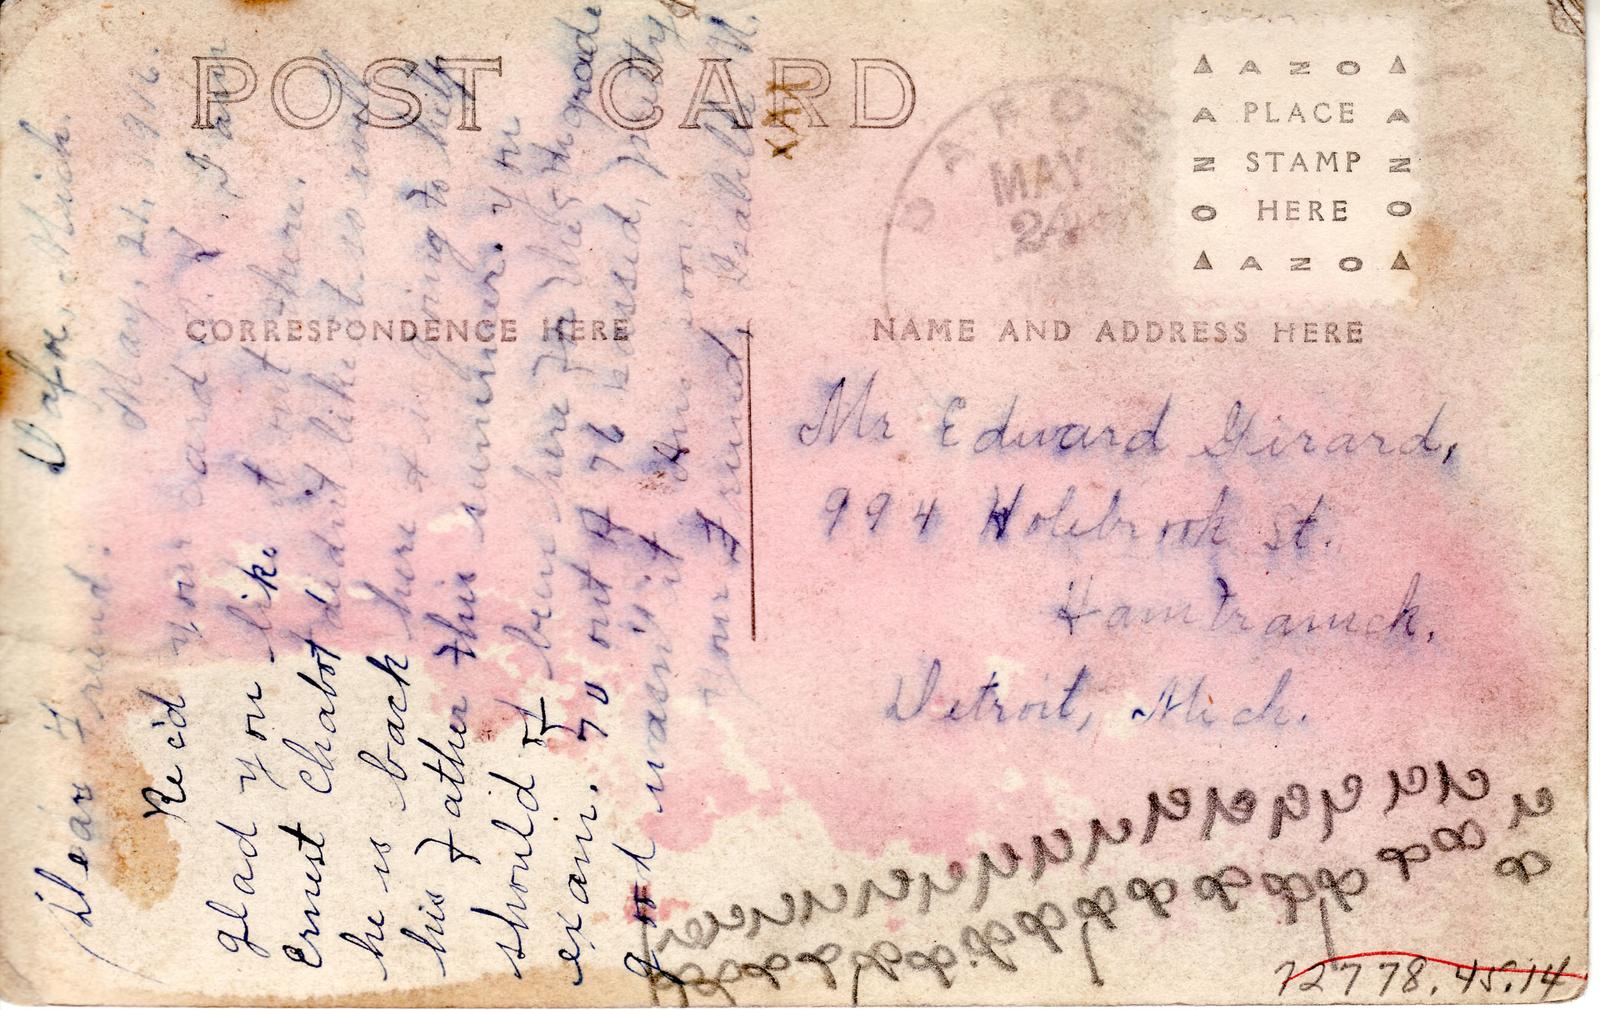 POST CARD
CORRESPONDENCE HERE
NAME AND ADDRESS HERE
AZO
PLACE
STAMP
HERE
AZO
DAFO
MAY
24
Dafo, Mich.
May, 21, 191
Dear Friend:
Rec'd your card. I am
glad you like it out there.
Ernest Chabot didn't like it so well
he is back here & is going to help
his Father this summer. You
should of been here for the 8th grade
exam. 70 out of 76 passed, pretty
good wasn't it Ans soon
Your Friend
XXX
Mr Edward Girard,
994 Holebrook St.
Hamtramck.
Detroit, Mich.
72778.45.14